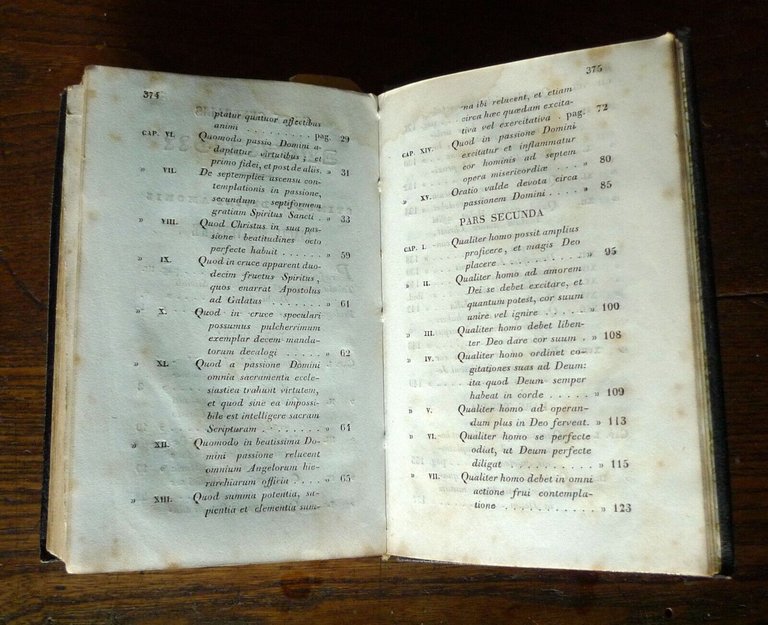 374
ptatur quatuor affectibus
animi . . . . . . . . . pag. 29
CAP. VI. Quomodo passio Domini a-
daptatur virtutibus ; et
primo fidei, et post de aliis. » 31
» VII. De septemplici ascensu con-
templationis in passione,
secundum septiformem
gratiam Spiritus Sancti . » 33
» VIII. Quod Christus in sua pas-
sione beatitudines octo
perfecte habuit . . . . . . » 59
» IX. Quod in cruce apparent duo-
decim fructus Spiritus,
quos enarrat Apostolus
ad Galatas . . . . . . . . » 61
» X. Quod in cruce speculari
possumus pulcherrimum
exemplar decem manda-
torum decalogi . . . . . . » 62
» XI. Quod a passione Domini
omnia sacramenta eccle-
siastica trahunt virtutem,
et quod sine ea impossi-
bile est intelligere sacram
Scripturam . . . . . . . . » 64
» XII. Quomodo in beatissima Do-
mini passione relucent
omnium Angelorum hie-
rarchiarum officia . . . . » 65
» XIII. Quod summa potentia, sa-
pientia et clementia sum-
375
na ibi relucent, et etiam
circa hæc quædam excita-
tiva vel exercitativa . pag. 72
CAP. XIV. Quod in passione Domini
excitatur et inflammatur
cor hominis ad septem
opera misericordiæ . . . » 80
» XV. Oratio valde devota circa
passionem Domini . . . . » 85
PARS SECUNDA
CAP. I. Qualiter homo possit amplius
proficere, et magis Deo
placere . . . . . . . . . . » 95
» II. Qualiter homo ad amorem
Dei se debet excitare, et
quantum potest, cor suum
unire vel ignire . . . . . » 100
» III. Qualiter homo debet liben-
ter Deo dare cor suum . » 108
» IV. Qualiter homo ordinet co-
gitationes suas ad Deum:
ita quod Deum semper
habeat in corde . . . . . » 109
» V. Qualiter homo ad operan-
dum plus in Deo ferveat. » 113
» VI. Qualiter homo se perfecte
odiat, ut Deum perfecte
diligat . . . . . . . . . . » 115
» VII. Qualiter homo debet in omni
actione frui contempla-
tione . . . . . . . . . . . » 123